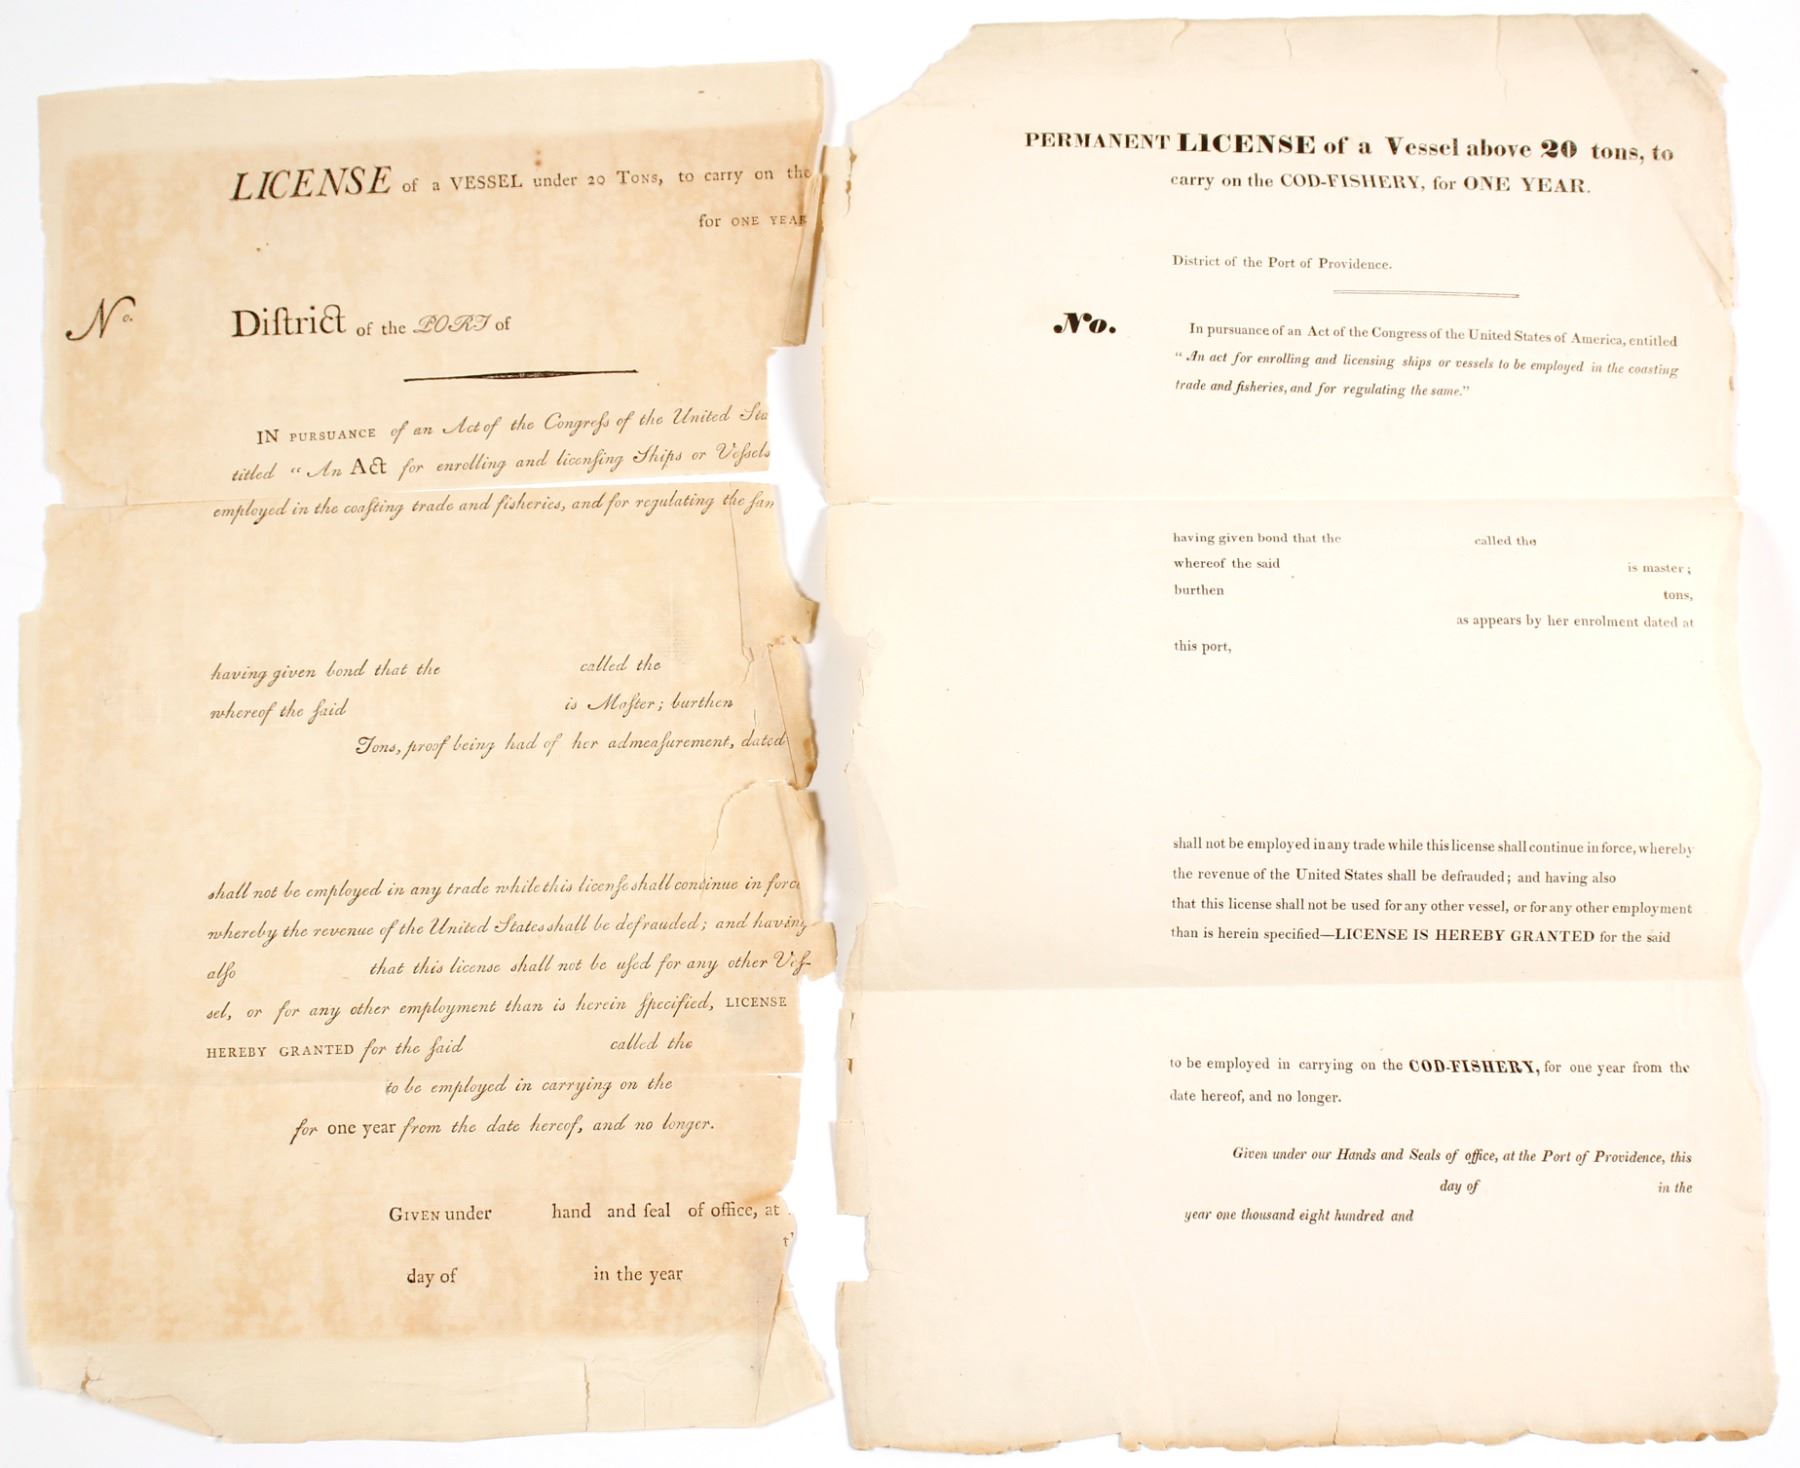 LICENSE of a VESSEL under 20 Tons, to carry on the
for ONE YEAR
No.
Diſtrict of the PORT of
IN PURSUANCE of an Act of the Congreſs of the United Sta
titled “An Act for enrolling and licenſing Ships or Veſsels
employed in the coaſting trade and fiſheries, and for regulating the ſam
having given bond that the called the
whereof the ſaid is Maſter; burthen
Tons, proof being had of her admeaſurement, dated
shall not be employed in any trade while this licenſe shall continue in force
whereby the revenue of the United States shall be defrauded; and having
alſo that this license shall not be uſed for any other Veſ-
sel, or for any other employment than is herein ſpecified, LICENSE
HEREBY GRANTED for the ſaid called the
to be employed in carrying on the
for one year from the date hereof, and no longer.
GIVEN under hand and ſeal of office, at
day of in the year
PERMANENT LICENSE of a Vessel above 20 tons, to
carry on the COD-FISHERY, for ONE YEAR.
District of the Port of Providence.
No.
In pursuance of an Act of the Congress of the United States of America, entitled
“An act for enrolling and licensing ships or vessels to be employed in the coasting
trade and fisheries, and for regulating the same.”
having given bond that the called the
whereof the said is master;
burthen tons,
as appears by her enrolment dated at
this port,
shall not be employed in any trade while this license shall continue in force, whereby
the revenue of the United States shall be defrauded; and having also
that this license shall not be used for any other vessel, or for any other employment
than is herein specified—LICENSE IS HEREBY GRANTED for the said
to be employed in carrying on the COD-FISHERY, for one year from the
date hereof, and no longer.
Given under our Hands and Seals of office, at the Port of Providence, this
day of in the
year one thousand eight hundred and